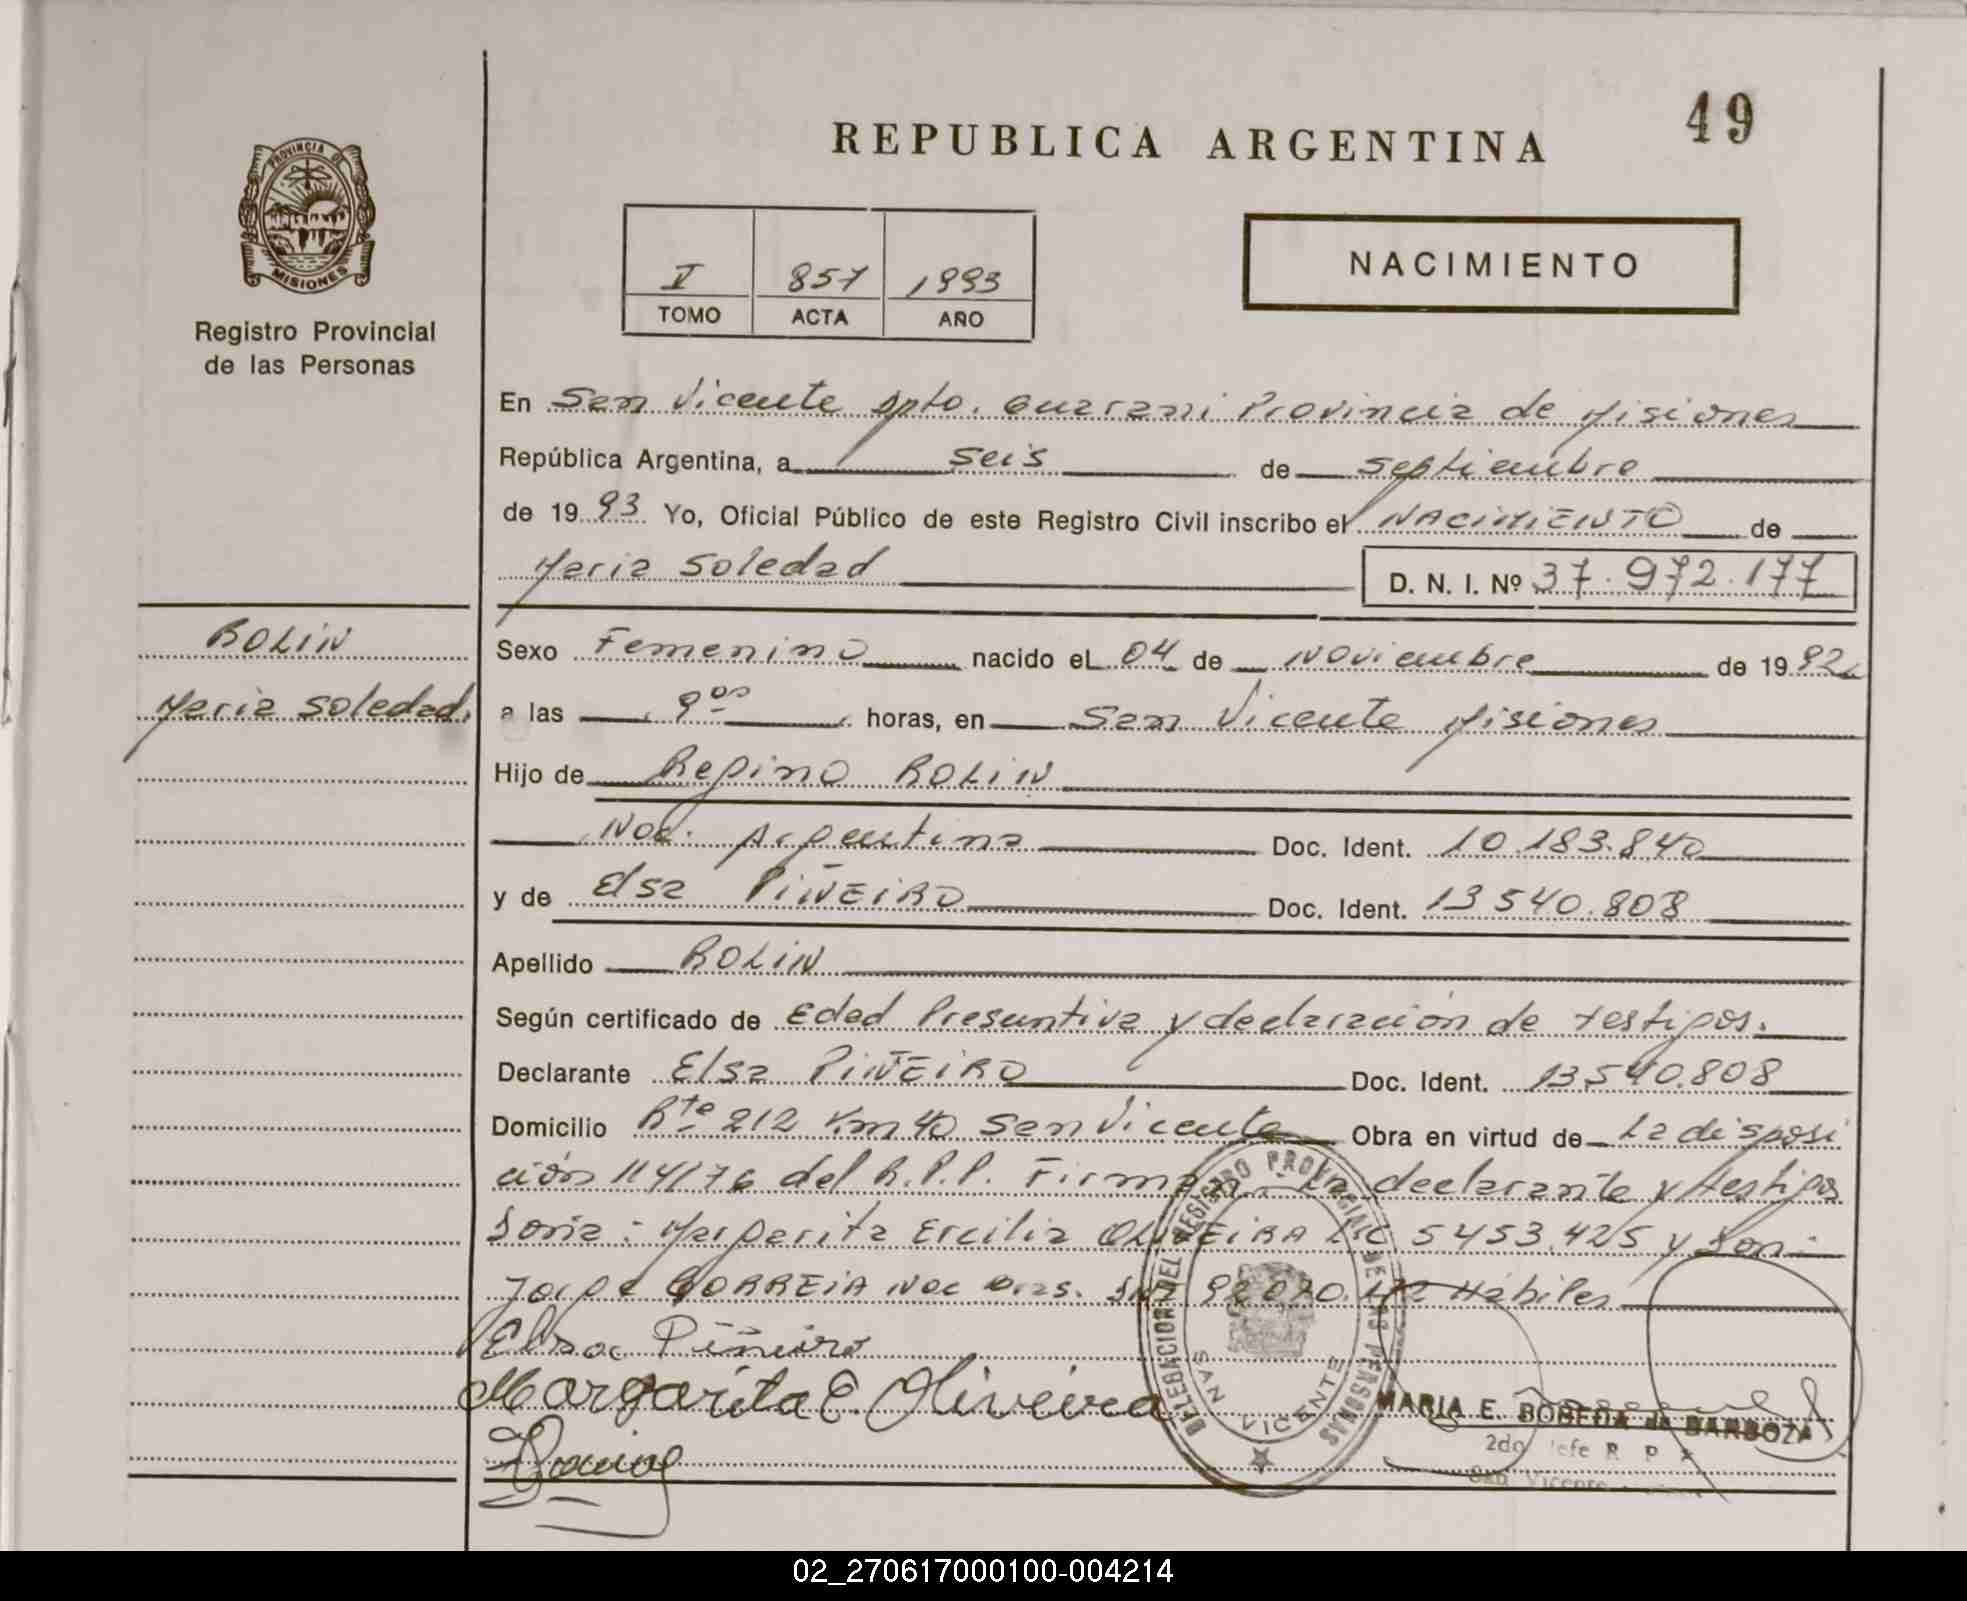 49
REPUBLICA ARGENTINA
PROVINCIA DE
MISIONES
Registro Provincial
de las Personas
NACIMIENTO
I 857 1993
TOMO ACTA AÑO
En San Vicente Dpto. Guarani Provincia de Misiones
República Argentina, a seis de septiembre
de 1993 Yo, Oficial Público de este Registro Civil inscribo el NACIMIENTO de
Maria Soledad D. N. I. Nº 37.972.177
ROLIN
Maria Soledad.
Sexo Femenino nacido el 04 de Noviembre de 1992
a las 9⁰⁰ horas, en San Vicente Misiones
Hijo de Regino ROLIN
Nac. Argentina Doc. Ident. 10.183.840
y de Elsa PIÑEIRO Doc. Ident. 13540.808
Apellido ROLIN
Según certificado de Edad Presuntiva y declaración de testigos.
Declarante Elsa PIÑEIRO Doc. Ident. 13540.808
Domicilio Rta 212 Km 40 San Vicente Obra en virtud de La disposi
ción 114/76 del R.P.P. Firman La declarante y testigos
Doña: Margarita Ercilia OLIVEIRA LC 5453.425 y Don:
Jorge CORREIA Nac Bras. DNI 92070. Hábiles
Elsa Piñeiro
Margarita E. Oliveira
DELEGACION DEL REGISTRO PROVINCIAL DE LAS PERSONAS
SAN VICENTE
MARIA E. BOBEDA de BARBOZA
2do Jefe R P
San Vicente
02_270617000100-004214